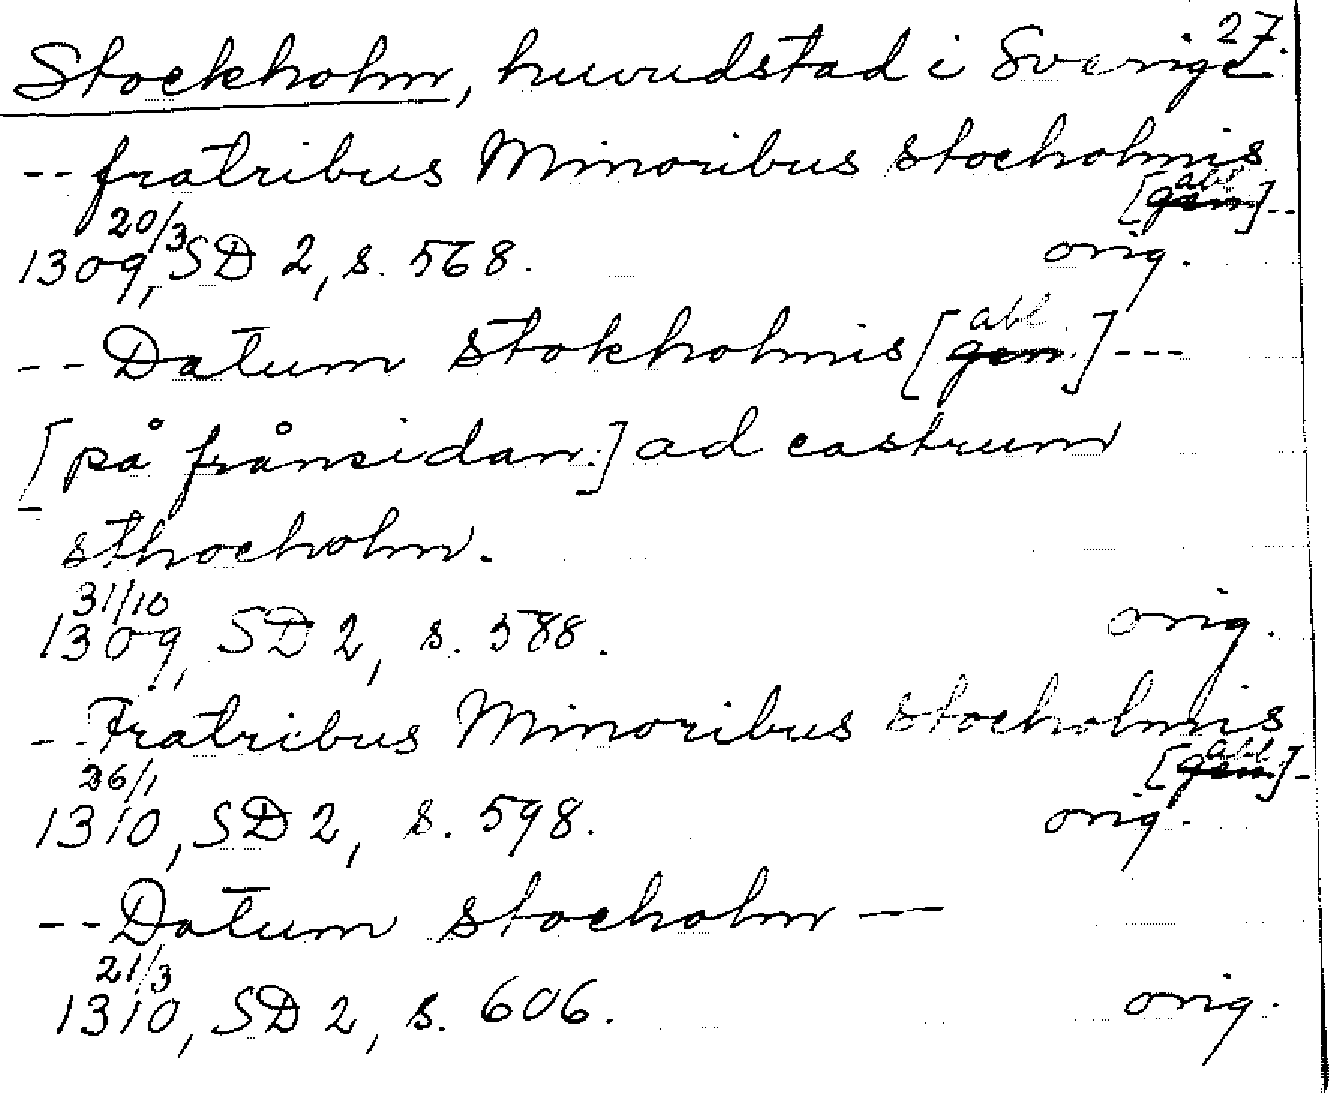 27.
Stockholm, huvudstad i Sverige
-- fratribus Minoribus stocholmis
[gen abl]--
20/3
1309, SD 2, s. 568. orig.
-- Datum stokholmis [gen. abl.] ---
[på frånsidan:] ad castrum
sthocholm.
31/10
1309, SD 2, s. 588. orig.
-- Fratribus Minoribus stocholmis
[gen abl]-
26/1
1310, SD 2, s. 598. orig.
-- Datum stocholm --
21/3
1310, SD 2, s. 606. orig.